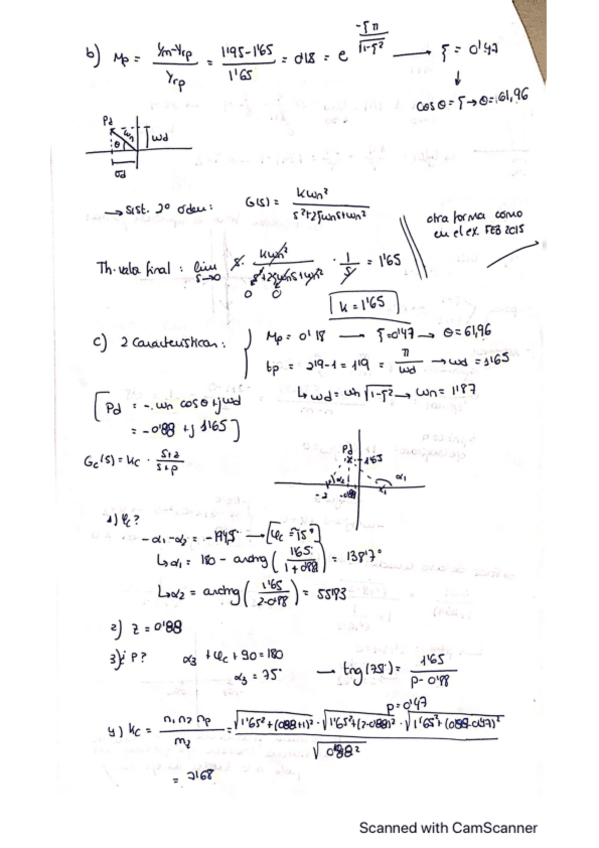 b) Mp = (Ym-Yrp)/Yrp = (1'95-1'65)/1'65 = 0'18 = e^(-ζπ/√(1-ζ²)) → ζ = 0'47
cos θ = ζ → θ = 61,96
Pd
wn
wd
θ
σd
→ Sist. 2º orden: G(s) = kwn²/(s²+2ζwns+wn²)
otra forma como
en el ex. FEB 2015
Th. valor final: lim s→0 s · kwn²/(s²+2ζwns+wn²) · 1/s = 1'65
0 0
k = 1'65
c) 2 características: { Mp = 0'18 → ζ=0'47 → θ=61,96
tp = 2'9-1 = 1'9 = π/wd → wd = 1'65
↳ wd = wn √(1-ζ²) → wn = 1'87
[Pd = -wn cos θ + jwd
= -0'88 + j 1'65]
Gc(s) = kc · (s+z)/(s+p)
Pd
1'65
α1
-2 -0'88
1) φc?
-α1-α2 = -194,5 → [φc = 15°]
↳ α1 = 180 - arctng (1'65/(1+0'88)) = 138'7°
↳ α2 = arctng (1'65/(2-0'88)) = 55'83
2) z = 0'88
3) ¿P? α3 + φc + 90 = 180
α3 = 75° → tng(75) = 1'65/(p-0'88)
p = 0'47
4) kc = n1 n2 np/mz = √(1'65²+(0'88+1)²) · √(1'65²+(2-0'88)²) · √(1'65²+(0'88-0'47)²)/√(0'88²)
= 2'68
Scanned with CamScanner